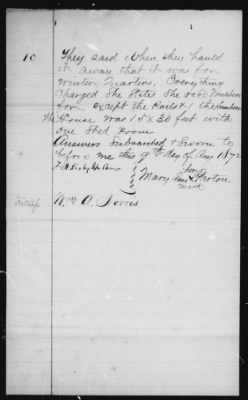 10 They said when they hauld
it away that it was for
winter quarters, Everything
charged she states she was
for except the Parlor
The House was 18 x 30 feet with
one Shed room
Answers Subscribed & Sworn to
before me this 9th day of Aug 187
her
Mary Ann
mark
Witness Wm A. Norris